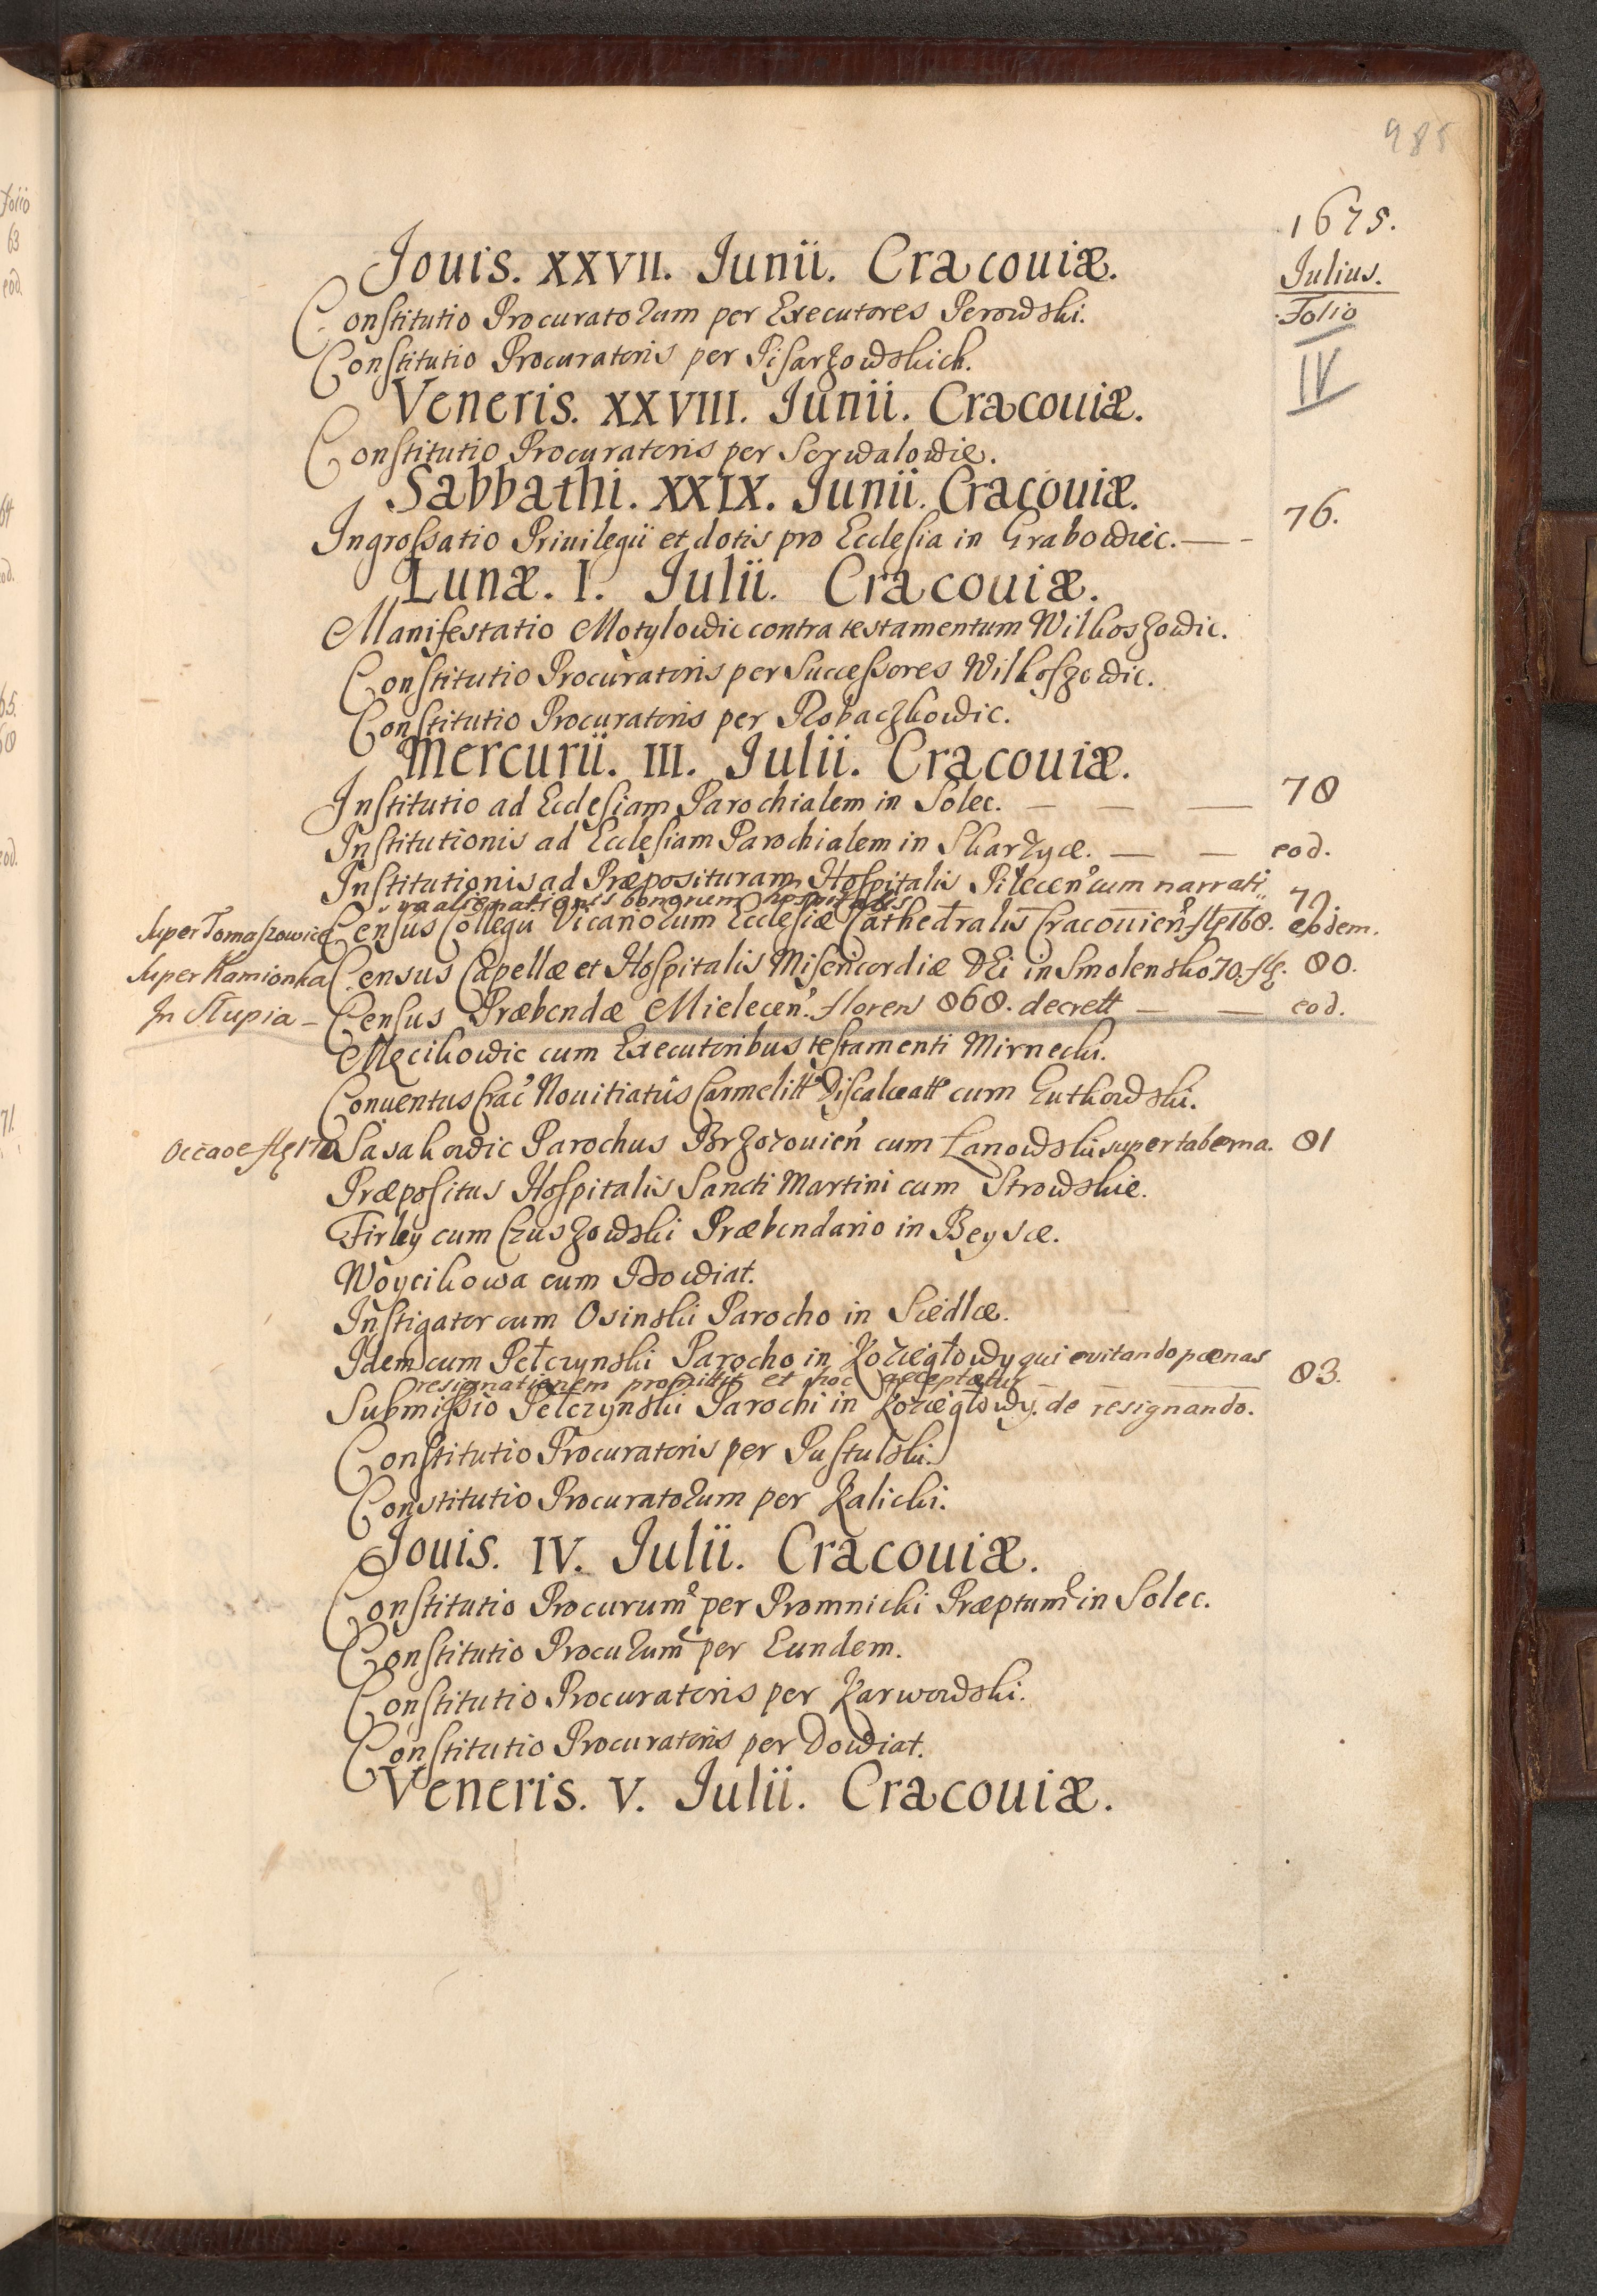 985
1675.
Julius.
Folio
IV
Jouis. XXVII. Junii. Cracouiæ.
Constitutio Procuratorum per Executores Perowski.
Constitutio Procuratoris per Pisarzowskich.
Veneris. XXVIII. Junii. Cracouiæ.
Constitutio Procuratoris per Serwalowic.
Sabbathi. XXIX. Junii. Cracouiæ.
Ingrossatio Priuilegii et dotis pro Ecclesia in Grabowiec. — - 76.
Lunæ. I. Julii. Cracouiæ.
Manifestatio Motylowic contra testamentum Wilkoszowic.
Constitutio Procuratoris per Successores Wilkoszowic.
Constitutio Procuratoris per Robaczkowic.
Mercurii. III. Julii. Cracouiæ.
Institutio ad Ecclesiam Parochialem in Solec. — — — 78
Institutionis ad Ecclesiam Parochialem in Skarzyce. — — eod.
Institutionis ad Præposituram Hospitalis Pilecen. cum narrati
ua alienationis bonorum hospitalis 79.
Super Tomaszowice Census Collegii Vicariorum Ecclesiæ Cathedralis Cracouien. flg 168. eodem.
Super Kamionka Census Capellæ et Hospitalis Misericordiæ DEi in Smolensko 70. flg. 80.
In Słupia - Census Præbendæ Mielecen. floren 868. decrett — — eod.
Męcikowic cum Executoribus testamenti Mirnecki.
Conuentus Crac. Nouitiatus Carmelitt. Discalceatt. cum Gutkowski.
flg 170 Sasakowic Parochus Brzozouien cum Łanowski super taberna. 81
Præpositus Hospitalis Sancti Martini cum Strowskie.
Firley cum Czuszowski Præbendario in Beysce.
Woycikowa cum Dowiat.
Instigator cum Osinski Parocho in Siedlce.
Idem cum Pełczynski Parocho in Kozięgłowy qui euitando pœnas
resignationem promittit et hoc acceptatur 83.
Submissio Pełczynski Parochi in Kozięgłowy. de resignando.
Constitutio Procuratoris per Pustulski.
Constitutio Procuratorum per Kalicki.
Jouis. IV. Julii. Cracouiæ.
Constitutio Procurum per Promnicki Præptum in Solec.
Constitutio Procurum per Eundem.
Constitutio Procuratoris per Karwowski.
Constitutio Procuratoris per Dowiat.
Veneris. V. Julii. Cracouiæ.